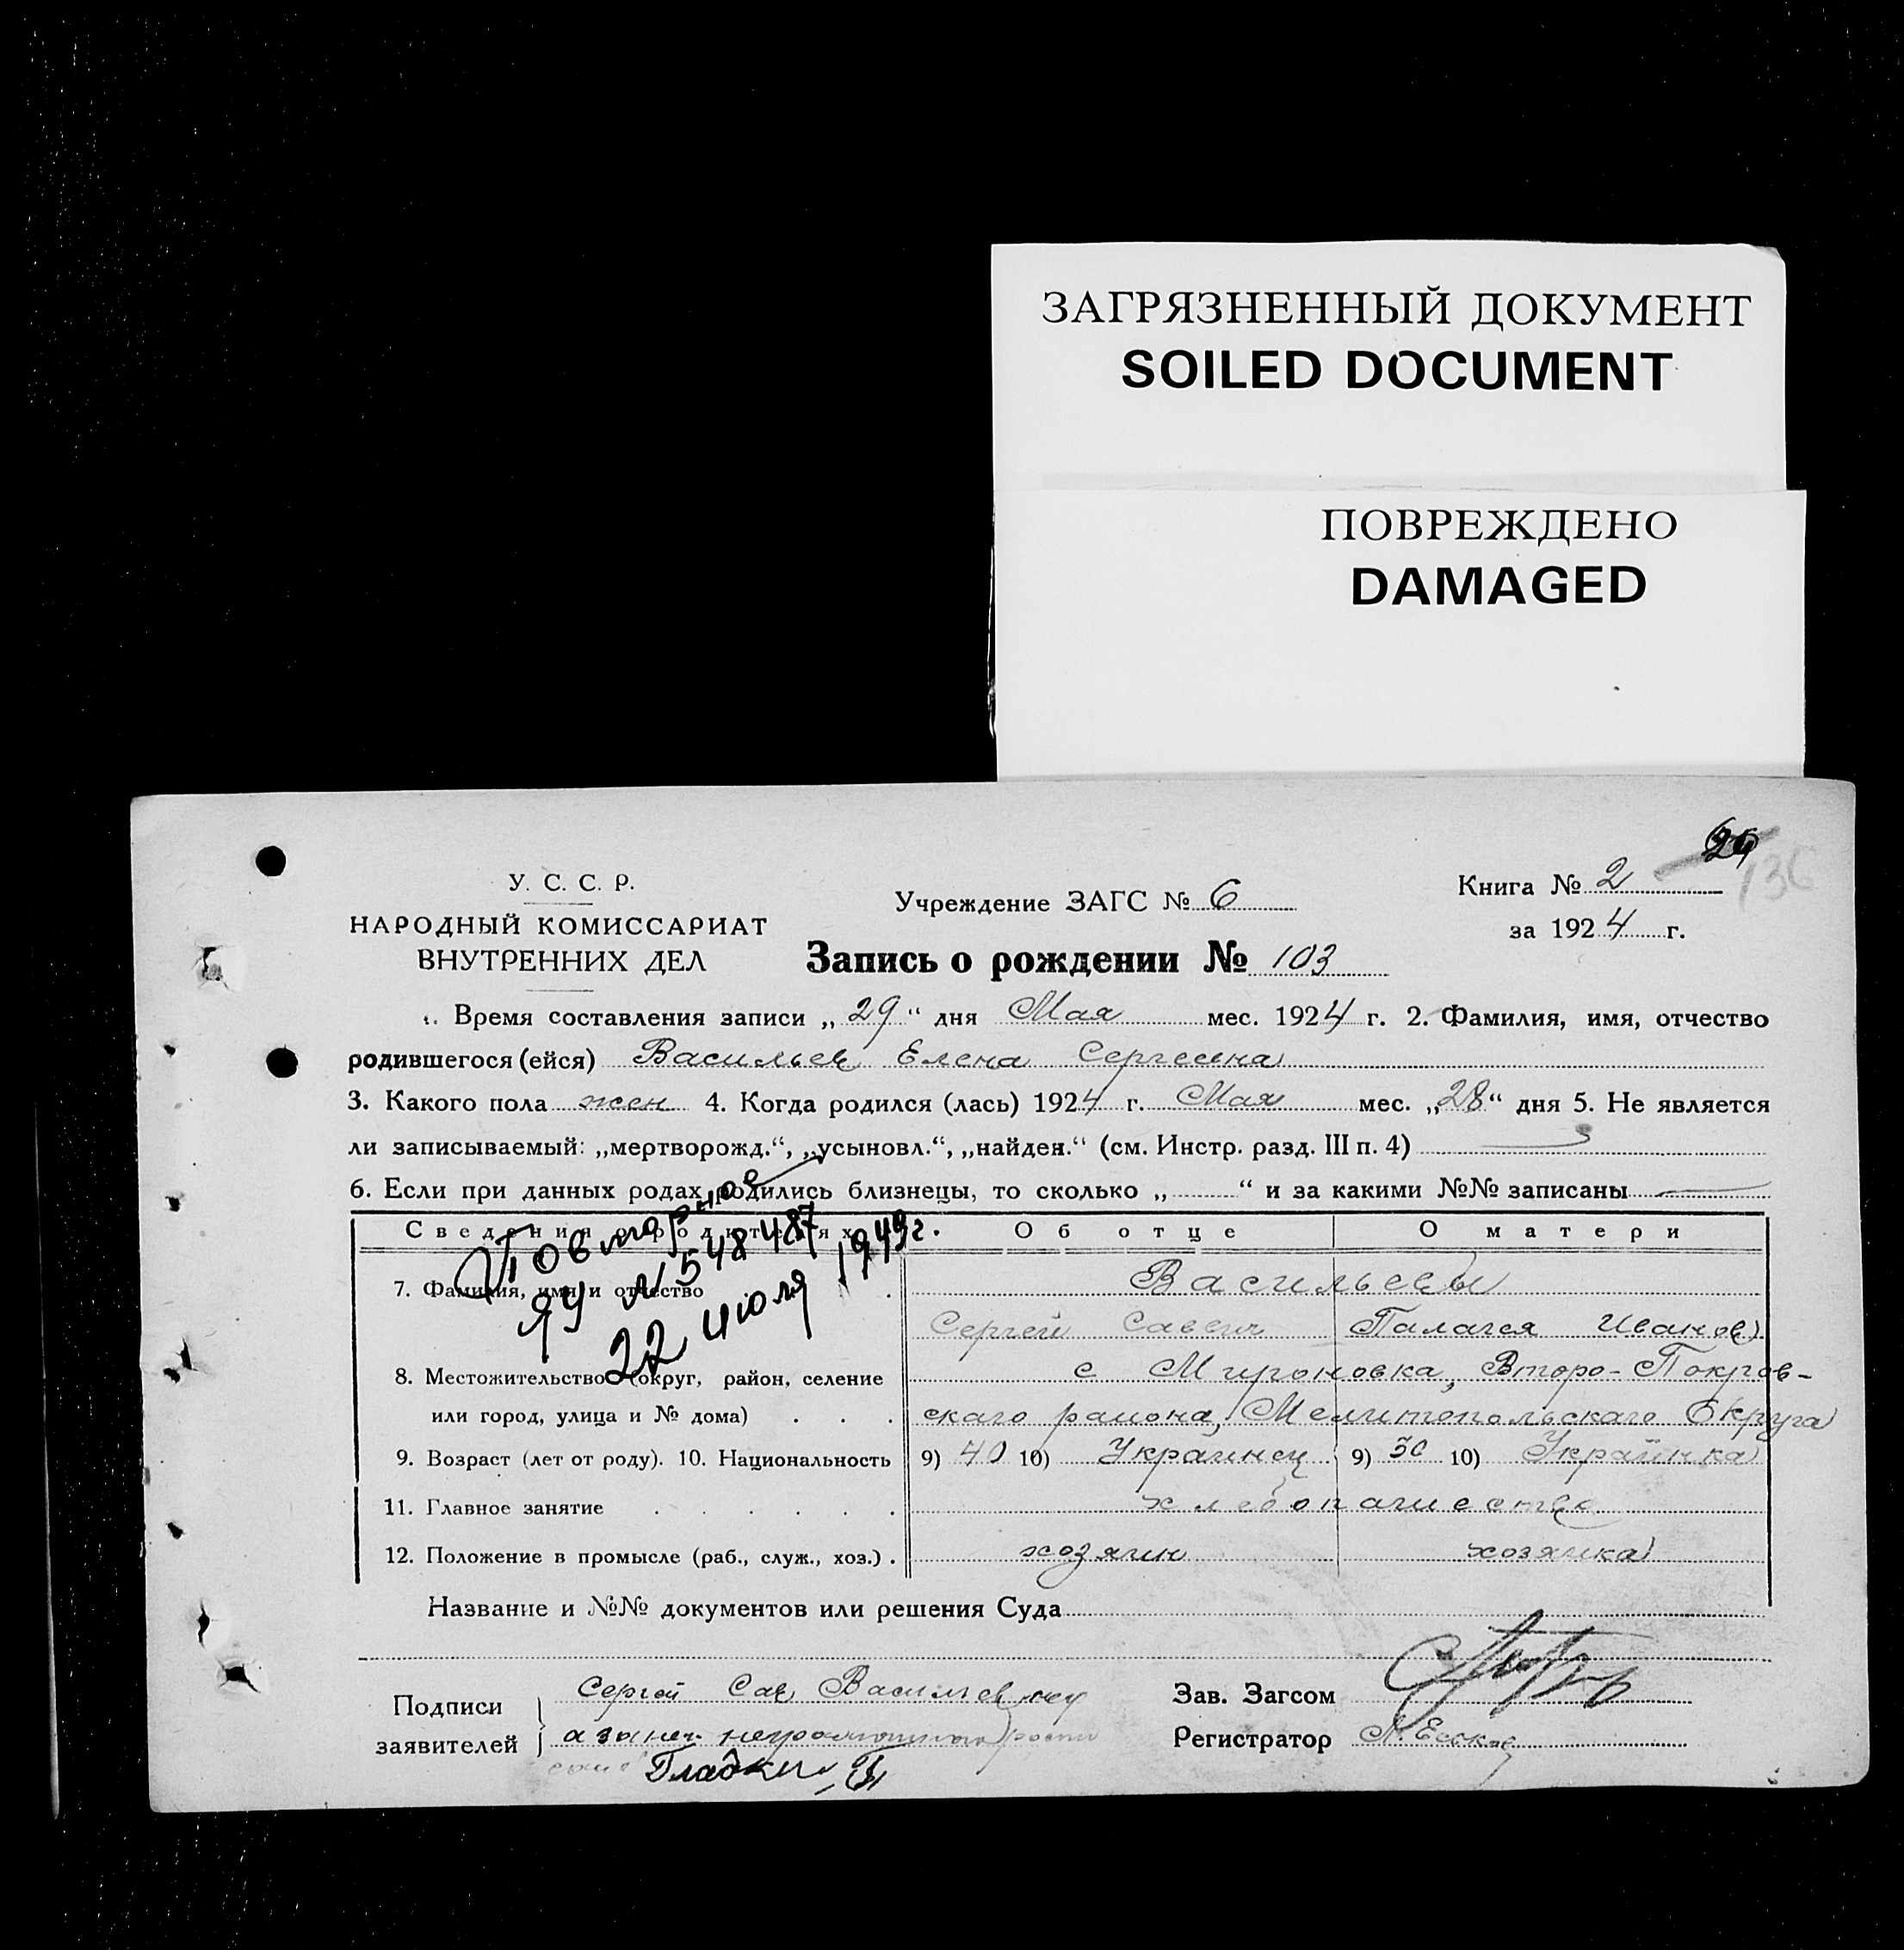 ЗАГРЯЗНЕННЫЙ ДОКУМЕНТ
SOILED DOCUMENT
ПОВРЕЖДЕНО
DAMAGED
136
У. С. С. Р.
НАРОДНЫЙ КОМИССАРИАТ
ВНУТРЕННИХ ДЕЛ
Учреждение ЗАГС № 6
Книга № 2
за 1924 г.
Запись о рождении № 103
1. Время составления записи „29“ дня Мая мес. 1924 г. 2. Фамилия, имя, отчество
родившегося (ейся) Васильев Елена Сергеевна
3. Какого пола жен 4. Когда родился (лась) 1924 г. Мая мес. „28“ дня 5. Не является
ли записываемый: „мертворожд.“, „усыновл.“, „найден.“ (см. Инстр. разд. III п. 4)
6. Если при данных родах родились близнецы, то сколько „ “ и за какими №№ записаны
Повторное
ЯЧ № 548487
22 июля 1949 г.
Сведения о родителях Об отце О матери
7. Фамилия, имя и отчество . Васильевы
Сергей Савич Палагея Иванов
8. Местожительство (округ, район, селение с Мироновка, Второ-Покров-
или город, улица и № дома) . . . скаго района, Мелитопольскаго Округа
9. Возраст (лет от роду). 10. Национальность 9) 40 10) Украинец 9) 30 10) Украинка
11. Главное занятие . . . . . . хлебопашество
12. Положение в промысле (раб., служ., хоз.) . хозяин хозяйка
Название и №№ документов или решения Суда
Подписи заявителей Сергей Сав Васильев
а за нег неграмотнаго
Гладкий
Зав. Загсом
Регистратор